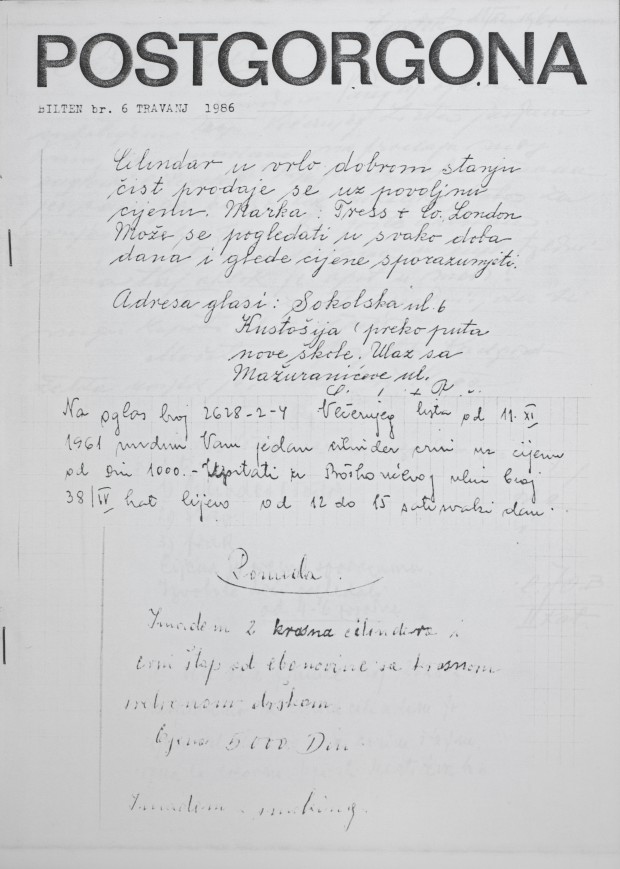 POSTGORGONA
BILTEN br. 6 TRAVANJ 1986
Cilindar u vrlo dobrom stanju
čist prodaje se uz povoljnu
cijenu. Marka: Tress & Co. London
Može se pogledati u svako doba
dana i glede cijene sporazumjeti.
Adresa glasi: Sokolska ul. 6
Kustošija (preko puta
nove škole. Ulaz sa
Mažuranićeve ul.
Na oglas broj 2628-2-4 Večernjeg lista od 11. XI
1961 nudim Vam jedan cilinder crni uz cijenu
od Din 1000.- Upitati u ulici broj
38/IV kat lijevo od 12 do 15 sati svaki dan.
Ponuda.
Imadem 2 krasna cilindera i
crni štap od ebanovine sa krasnom
srebrenom drškom
Cijena 5000 Din
Imadem smoking.